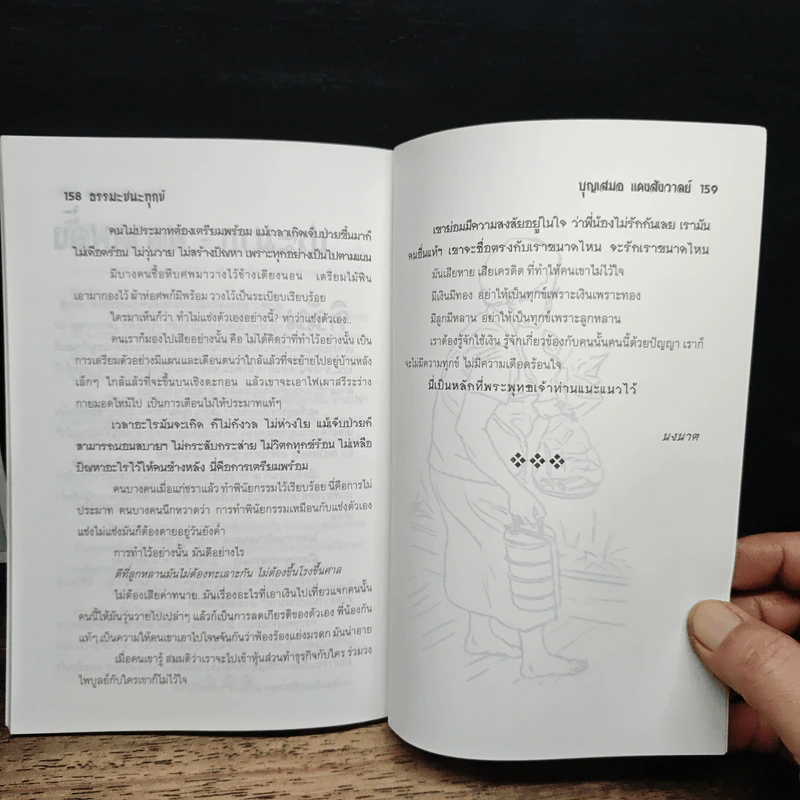 158 ธรรมะชนะทุกข์
คนไม่ประมาทต้องเตรียมพร้อม แม้เวลาเกิดเจ็บป่วยขึ้นมาก็
ไม่เดือดร้อน ไม่วุ่นวาย ไม่สร้างปัญหา เพราะทุกอย่างเป็นไปตามแผน
มีบางคนซื้อหีบศพมาวางไว้ข้างเตียงนอน เตรียมไม้ฟืน
เอามากองไว้ ผ้าห่อศพก็มีพร้อม วางไว้เป็นระเบียบเรียบร้อย
ใครมาเห็นก็ว่า ทำไมแช่งตัวเองอย่างนี้? หาว่าแช่งตัวเอง.
คนเราก็มองไปเสียอย่างนั้น คือ ไม่ได้คิดว่าที่ทำไว้อย่างนั้น เป็น
การเตรียมตัวอย่างมีแผนและเตือนตนว่าใกล้แล้วที่จะย้ายไปอยู่บ้านหลัง
เล็กๆ ใกล้แล้วที่จะขึ้นบนเชิงตะกอน แล้วเขาจะเอาไฟเผาสรีระร่าง
กายมอดไหม้ไป เป็นการเตือนไม่ให้ประมาทแท้ๆ
เวลาอะไรมันจะเกิด ก็ไม่กังวล ไม่ห่วงใย แม้เจ็บป่วยก็
สามารถนอนสบายๆ ไม่กระสับกระส่าย ไม่วิตกทุกข์ร้อน ไม่เหลือ
ปัญหาอะไรไว้ให้คนข้างหลัง นี่คือการเตรียมพร้อม
คนบางคนเมื่อแก่ชราแล้ว ทำพินัยกรรมไว้เรียบร้อย นี่คือการไม่
ประมาท คนบางคนนึกหวาดว่า การทำพินัยกรรมเหมือนกับแช่งตัวเอง
แช่งไม่แช่งมันก็ต้องตายอยู่วันยังค่ำ
การทำไว้อย่างนั้น มันดีอย่างไร
ดีที่ลูกหลานมันไม่ต้องทะเลาะกัน ไม่ต้องขึ้นโรงขึ้นศาล
ไม่ต้องเสียค่าทนาย..มันเรื่องอะไรที่เอาเงินไปเที่ยวแจกคนนั้น
คนนี้ให้มันวุ่นวายไปเปล่าๆ แล้วก็เป็นการลดเกียรติของตัวเอง พี่น้องกัน
แท้ๆ เป็นความให้คนเขาเอาไปโจษจันกันว่าฟ้องร้องแย่งมรดก มันน่าอาย
เมื่อคนเขารู้ สมมติว่าเราจะไปเข้าหุ้นส่วนทำธุรกิจกับใคร ร่วมวง
ไพบูลย์กับใครเขาก็ไม่ไว้ใจ
บุญเสมอ แดงสังวาลย์ 159
เขาย่อมมีความสงสัยอยู่ในใจ ว่าพี่น้องไม่รักกันเลย เรามัน
คนอื่นแท้ๆ เขาจะซื่อตรงกับเราขนาดไหน จะรักเราขนาดไหน
มันเสียหาย เสียเครดิต ที่ทำให้คนเขาไม่ไว้ใจ
มีเงินมีทอง อย่าให้เป็นทุกข์เพราะเงินเพราะทอง
มีลูกมีหลาน อย่าให้เป็นทุกข์เพราะลูกหลาน
เราต้องรู้จักใช้เงิน รู้จักเกี่ยวข้องกับคนนั้นคนนี้ด้วยปัญญา เราก็
จะไม่มีความทุกข์ ไม่มีความเดือดร้อนใจ
นี่เป็นหลักที่พระพุทธเจ้าท่านแนะแนวไว้
นงนาต